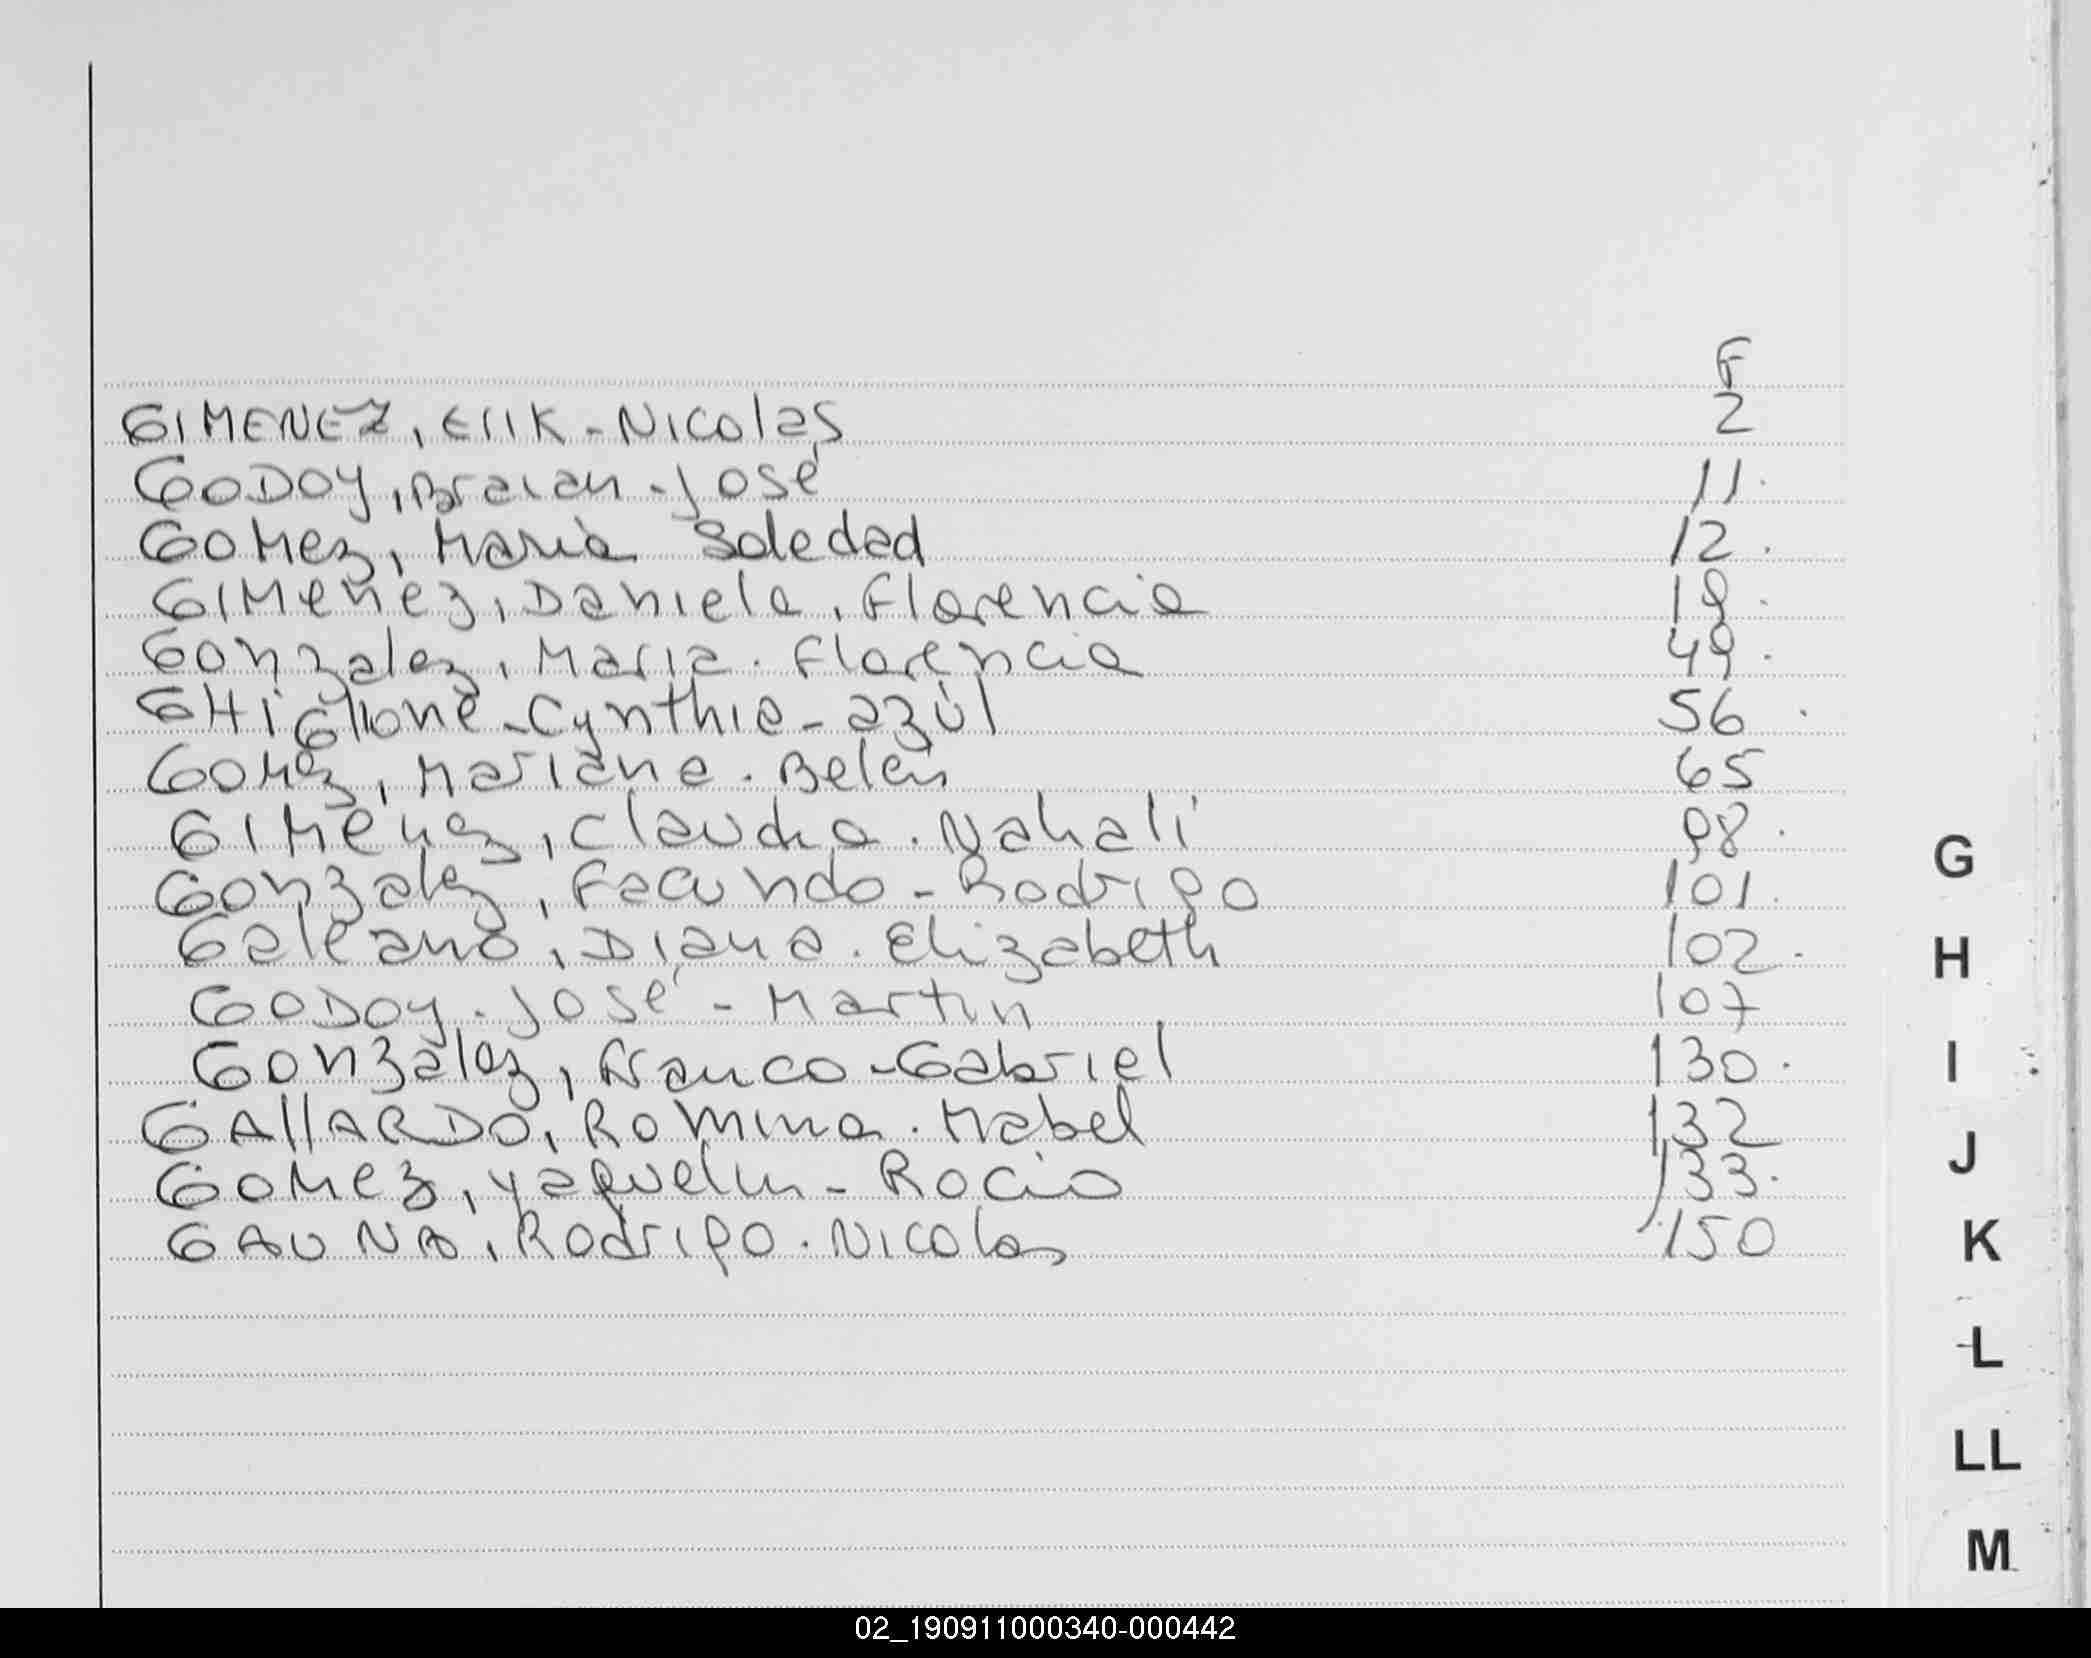 F
GIMENEZ, Erik - Nicolas 2
GODOY, Braian - José 11.
Gomez, Maria Soledad 12.
Gimenez, Daniela. Florencia 19.
Gonzalez, Maria. Florencia 49.
GHiGlione - Cynthia - azúl 56.
Gomez, Mariana. Belén 65
Gimenez, Claudia. Nahali 98.
Gonzalez, Facundo - Rodrigo 101.
Galeano, Diana. Elizabeth 102.
GODOY. José - Martin 107
Gonzalez, Franco - Gabriel 130.
GAllARDO, Romina. Mabel 132
Gomez, Yaquelin - Rocio 133.
GAUNA, Rodrigo. Nicolas 150
G
H
I
J
K
L
LL
M
02_190911000340-000442